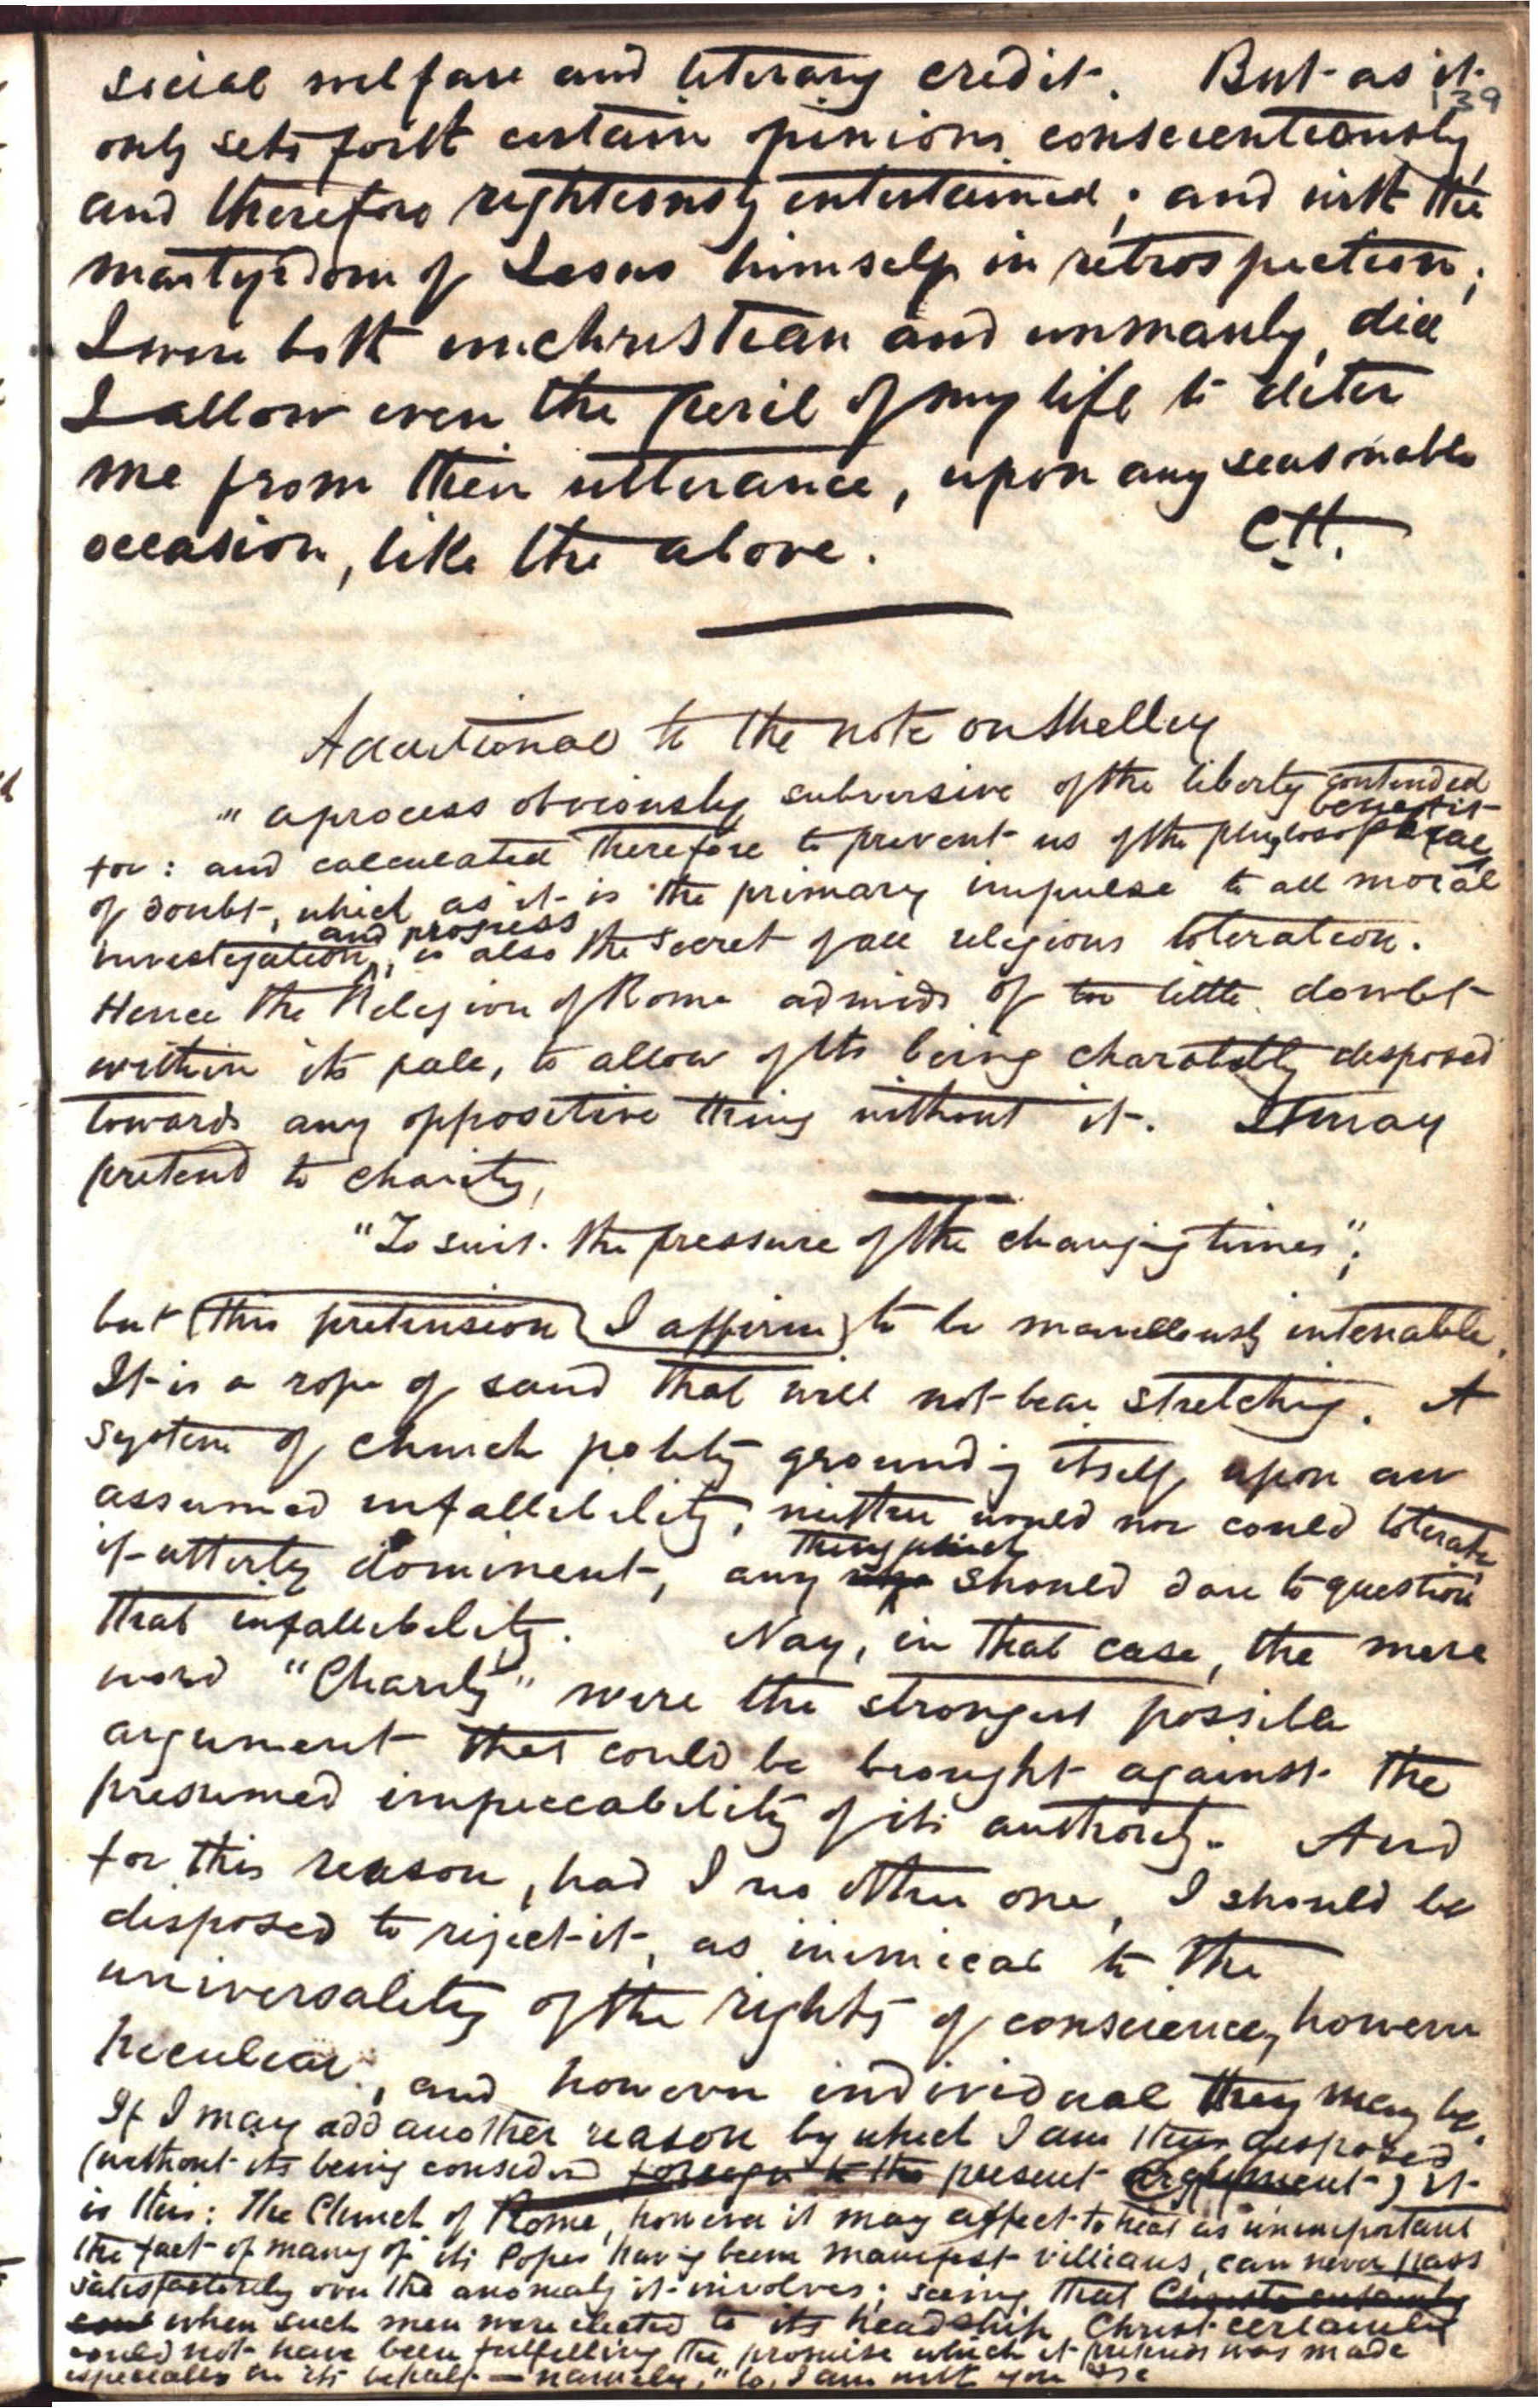 social welfare and literary credit. But as it
139
only sets forth certain opinions conscientiously,
and therefore righteously entertained; and with the
martyrdom of Jesus himself in retrospection;
I were both unchristian and unmanly, did
I allow even the peril of my life to deter
me from their utterance, upon any seasonable
occasion, like the above. C.H.
Additional to the note on Shelley
"a process obviously subversive of the liberty contended
for: and calculated therefore to prevent us of the philosophical benefit
of doubt, which as it is the primary impulse to all moral
investigation and progress, is also the secret of all religious toleration.
Hence the Religion of Rome admits of too little doubt
within its pale, to allow of its being charitably disposed
towards any oppositive thing without it. It may
pretend to charity,
"To suit the pressure of the changing times";
but (this pretension) (I affirm) to be marvellously untenable.
It is a rope of sand that will not bear stretching. A
system of church polity grounding itself upon an
assumed infallibility, neither would nor could tolerate,
if utterly dominent, any thing which should dare to question
that infallibility. Nay, in that case, the mere
word "Charity" were the strongest possible
argument that could be brought against the
presumed impeccability of its authority. And
for this reason, had I no other one, I should be
disposed to reject it, as inimical to the
universality of the rights of conscience, however
peculiar, and however individual they may be.
If I may add another reason by which I am thus disposed
(without its being considered foreign to the present argument) it
is this: The Church of Rome, however it may affect to treat as unimportant
the fact of many of its Popes having been manifest villians, can never pass
satisfactorily over the anomaly it involves; seeing, that Christ certainly
when such men were elected to its headship, Christ certainly
could not have been fulfilling the promise which it pretends was made
especially in its behalf — namely, "lo, I am with you &c